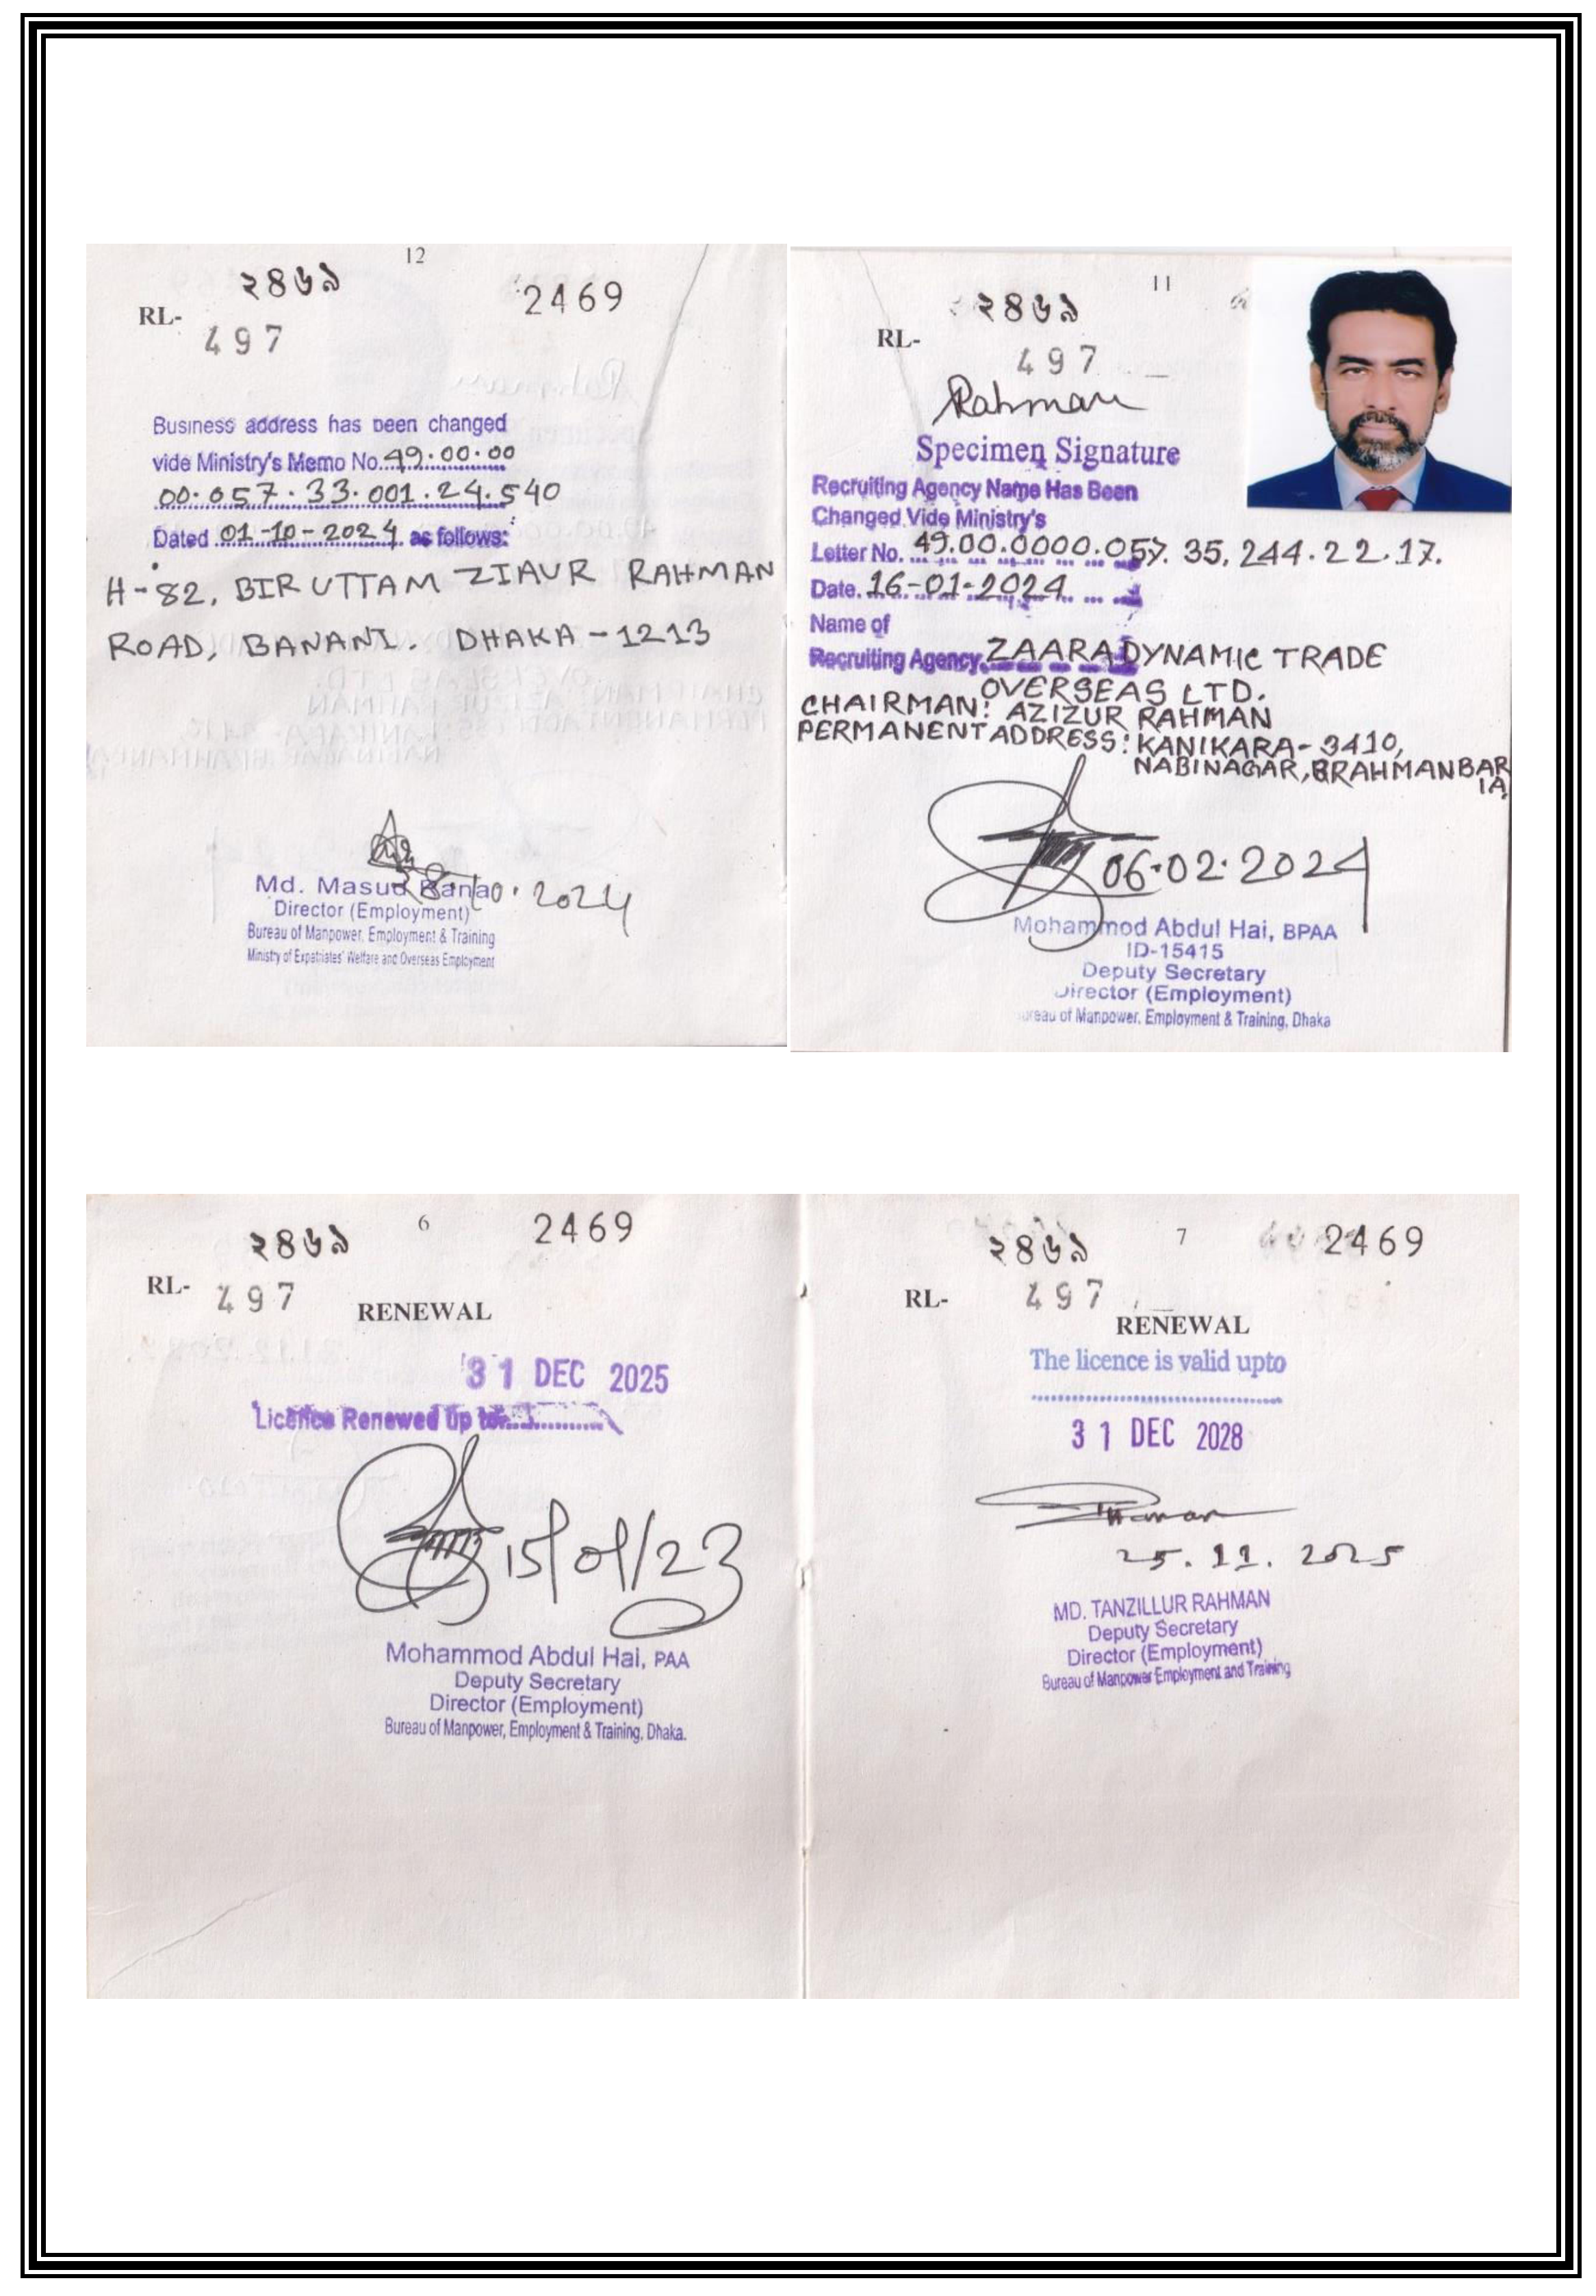 12
২৪৬৯
2469
RL-
497
Business address has been changed
vide Ministry's Memo No. 49.00.00
00.057.33.001.24.540
Dated 01-10-2024 as follows:
H-82, BIR UTTAM ZIAUR RAHMAN
ROAD, BANANI. DHAKA-1213
10.2024
Md. Masud Rana
Director (Employment)
Bureau of Manpower, Employment & Training
Ministry of Expatriates' Welfare and Overseas Employment
11
২৪৬৯
RL-
497
Rahman
Specimen Signature
Recruiting Agency Name Has Been
Changed Vide Ministry's
Letter No. 49.00.0000.057.35.244.22.17.
Date. 16-01-2024
Name of
Recruiting Agency ZAARA DYNAMIC TRADE
OVERSEAS LTD.
CHAIRMAN: AZIZUR RAHMAN
PERMANENT ADDRESS: KANIKARA-3410,
NABINAGAR, BRAHMANBAR
IA
06.02.2024
Mohammod Abdul Hai, BPAA
ID-15415
Deputy Secretary
Director (Employment)
Bureau of Manpower, Employment & Training, Dhaka
6
২৪৬৯
2469
RL-
497
RENEWAL
31 DEC 2025
Licence Renewed up to
15/01/23
Mohammod Abdul Hai, PAA
Deputy Secretary
Director (Employment)
Bureau of Manpower, Employment & Training, Dhaka.
7
২৪৬৯
2469
RL-
497
RENEWAL
The licence is valid upto
31 DEC 2028
25.11.2025
MD. TANZILLUR RAHMAN
Deputy Secretary
Director (Employment)
Bureau of Manpower Employment and Training